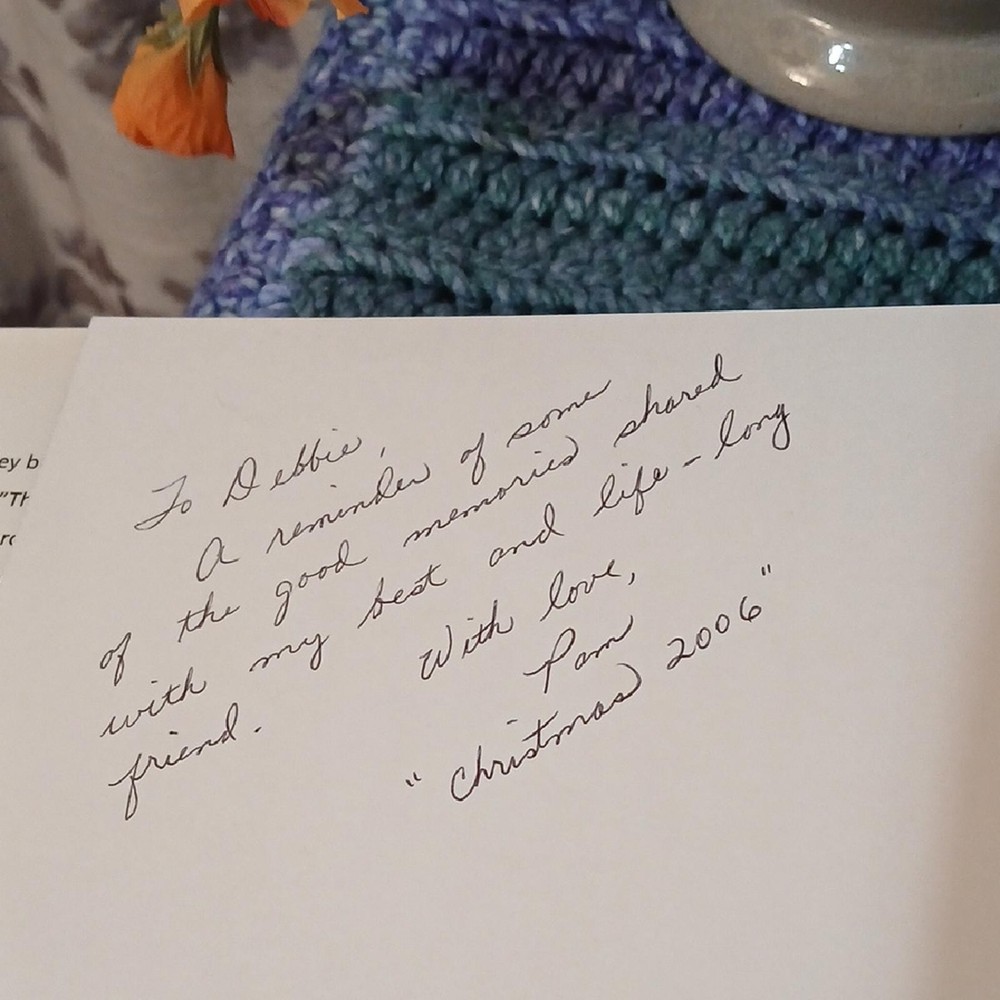 To Debbie,
A reminder of some
of the good memories shared
with my best and life-long
friend.
With love,
Pam
"Christmas 2006"
ey b
"Th